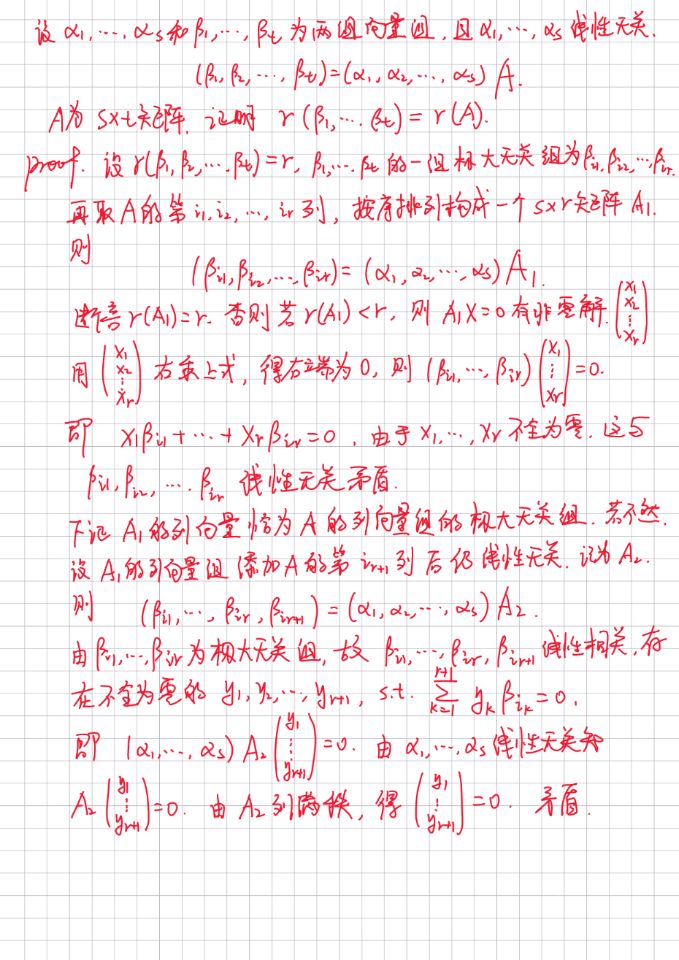 设 α₁,…,αₛ和β₁,…,βₜ为两组向量组,且α₁,…,αₛ线性无关.
(β₁,β₂,…,βₜ)=(α₁,α₂,…,αₛ)A.
A为s×t矩阵.证明 r(β₁,…,βₜ)=r(A).
proof. 设r(β₁,β₂,…,βₜ)=r, β₁,…,βₜ的一组极大无关组为β_{i1},β_{i2},…,β_{ir}.
再取A的第i₁,i₂,…,iᵣ列,按序排列构成一个s×r矩阵A₁.
则
(β_{i1},β_{i2},…,β_{ir})=(α₁,α₂,…,αₛ)A₁.
断言r(A₁)=r.否则若r(A₁)<r,则A₁X=0有非零解(x₁ x₂ ⋮ xᵣ)
用(x₁ x₂ ⋮ xᵣ)右乘上式,得右端为0,则(β_{i1},…,β_{ir})(x₁ ⋮ xᵣ)=0.
即 x₁β_{i1}+…+xᵣβ_{ir}=0,由于x₁,…,xᵣ不全为零.这与
β_{i1},β_{i2},…,β_{ir}线性无关矛盾.
下证A₁的列向量恰为A的列向量组的极大无关组.若不然,
设A₁的列向量组添加A的第i_{r+1}列后仍线性无关.记为A₂.
则 (β_{i1},…,β_{ir},β_{ir+1})=(α₁,α₂,…,αₛ)A₂.
由β_{i1},…,β_{ir}为极大无关组,故β_{i1},…,β_{ir},β_{ir+1}线性相关,存
在不全为零的y₁,y₂,…,y_{r+1}, s.t. ∑_{k=1}^{r+1} y_kβ_{i_k}=0,
即 (α₁,…,αₛ)A₂(y₁ ⋮ y_{r+1})=0.由α₁,…,αₛ线性无关知
A₂(y₁ ⋮ y_{r+1})=0.由A₂列满秩,得(y₁ ⋮ y_{r+1})=0.矛盾.